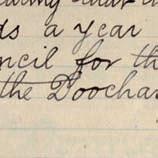 ds a year
ncil for th
the Doochar